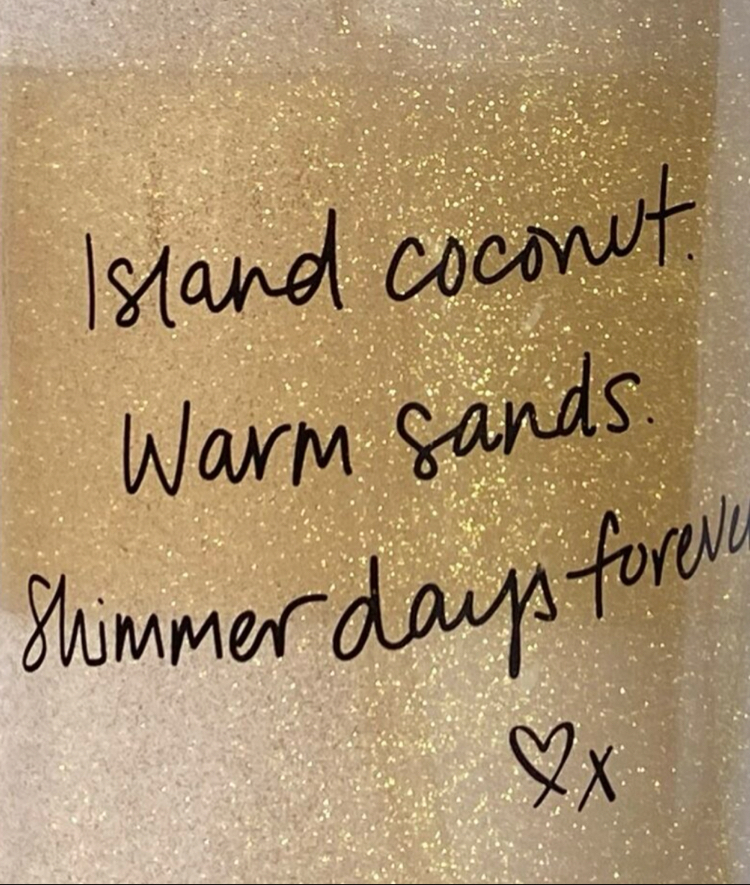 Island coconut.
Warm sands.
Shimmer days foreve
♡x